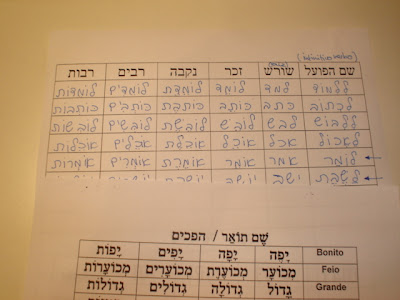 (infinitivo verbo)
שם הפועל שורש זכר נקבה רבים רבות
ללמוד למד לומד לומדת לומדים לומדות
לכתוב כתב כותב כותבת כותבים כותבות
ללבוש לבש לובש לובשת לובשים לובשות
לאכול אכל אוכל אוכלת אוכלים אוכלות
לומר אמר אומר אומרת אומרים אומרות
לשבת ישב יושב
שֵׁם תּוֹאַר / הפכים
Bonito יָפֶה יָפָה יָפִים יָפוֹת
Feio מְכוֹעָר מְכוֹעֶרֶת מְכוֹעָרִים מְכוֹעָרוֹת
Grande גָדוֹל גְדוֹלָה גְדוֹלִים גְדוֹלוֹת